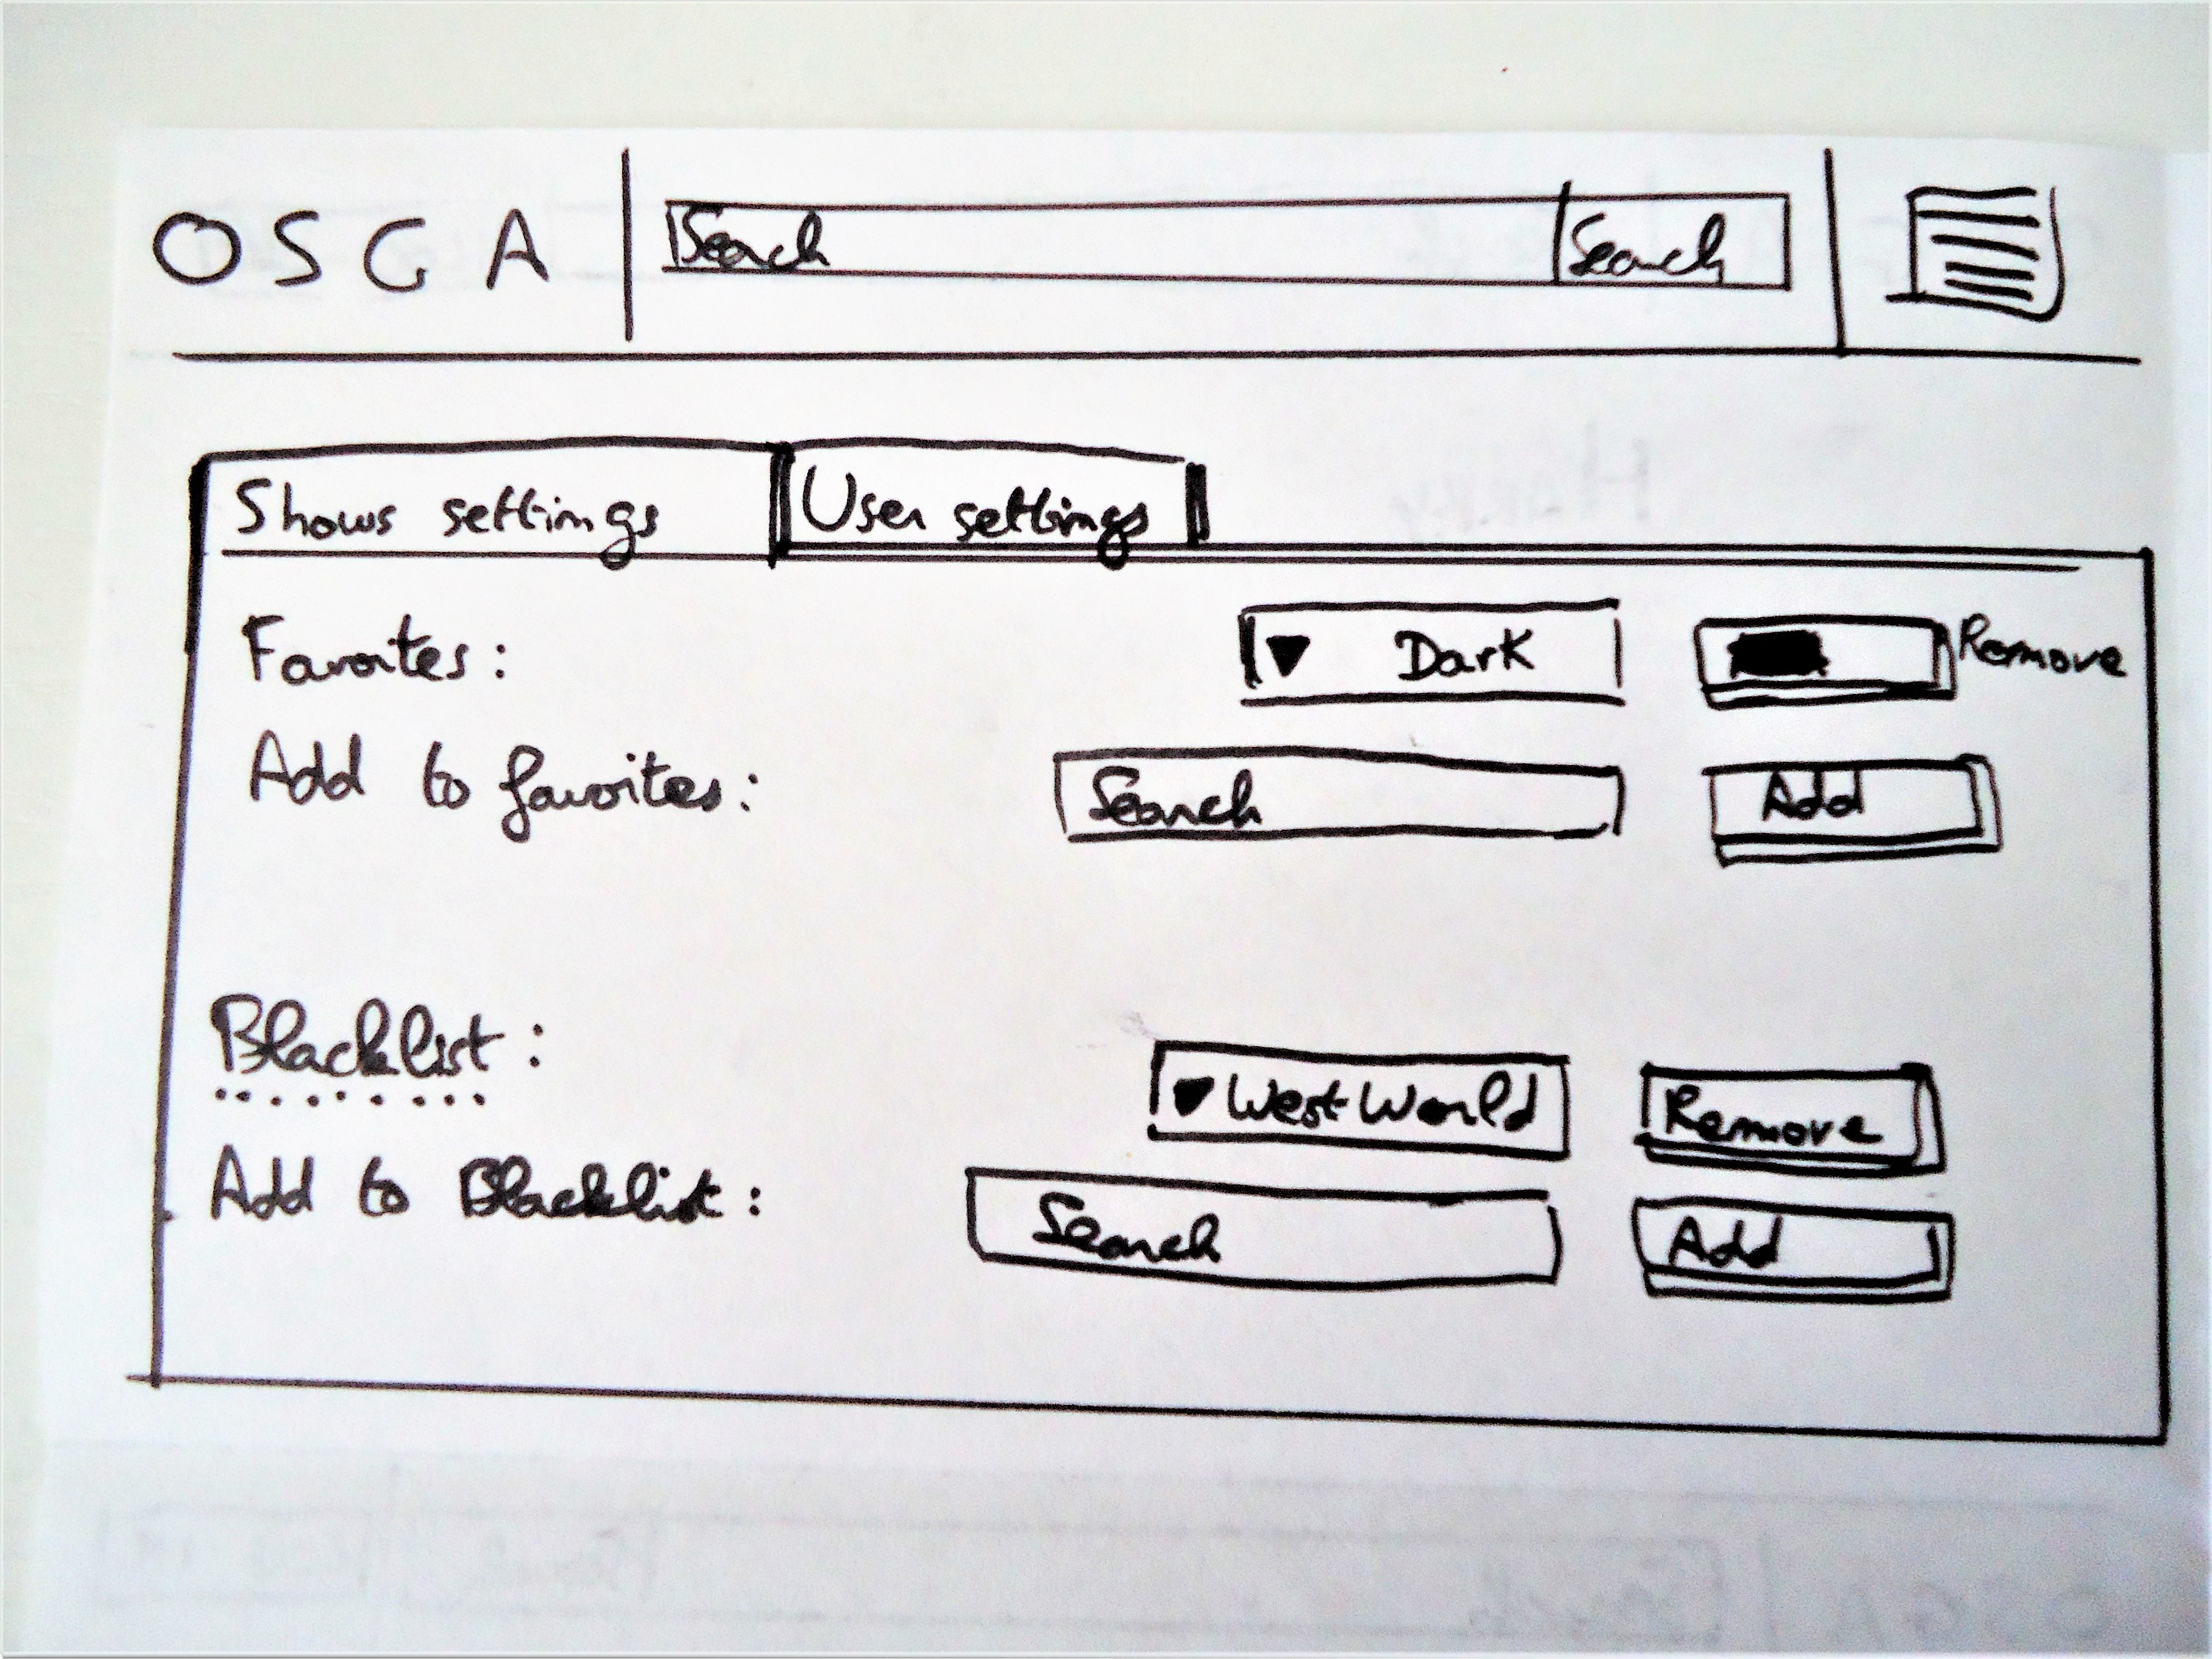 OSGA Search Search
Shows settings User settings
Favorites: Dark Remove
Add to favorites: Search Add
Blacklist: WestWorld Remove
Add to Blacklist: Search Add